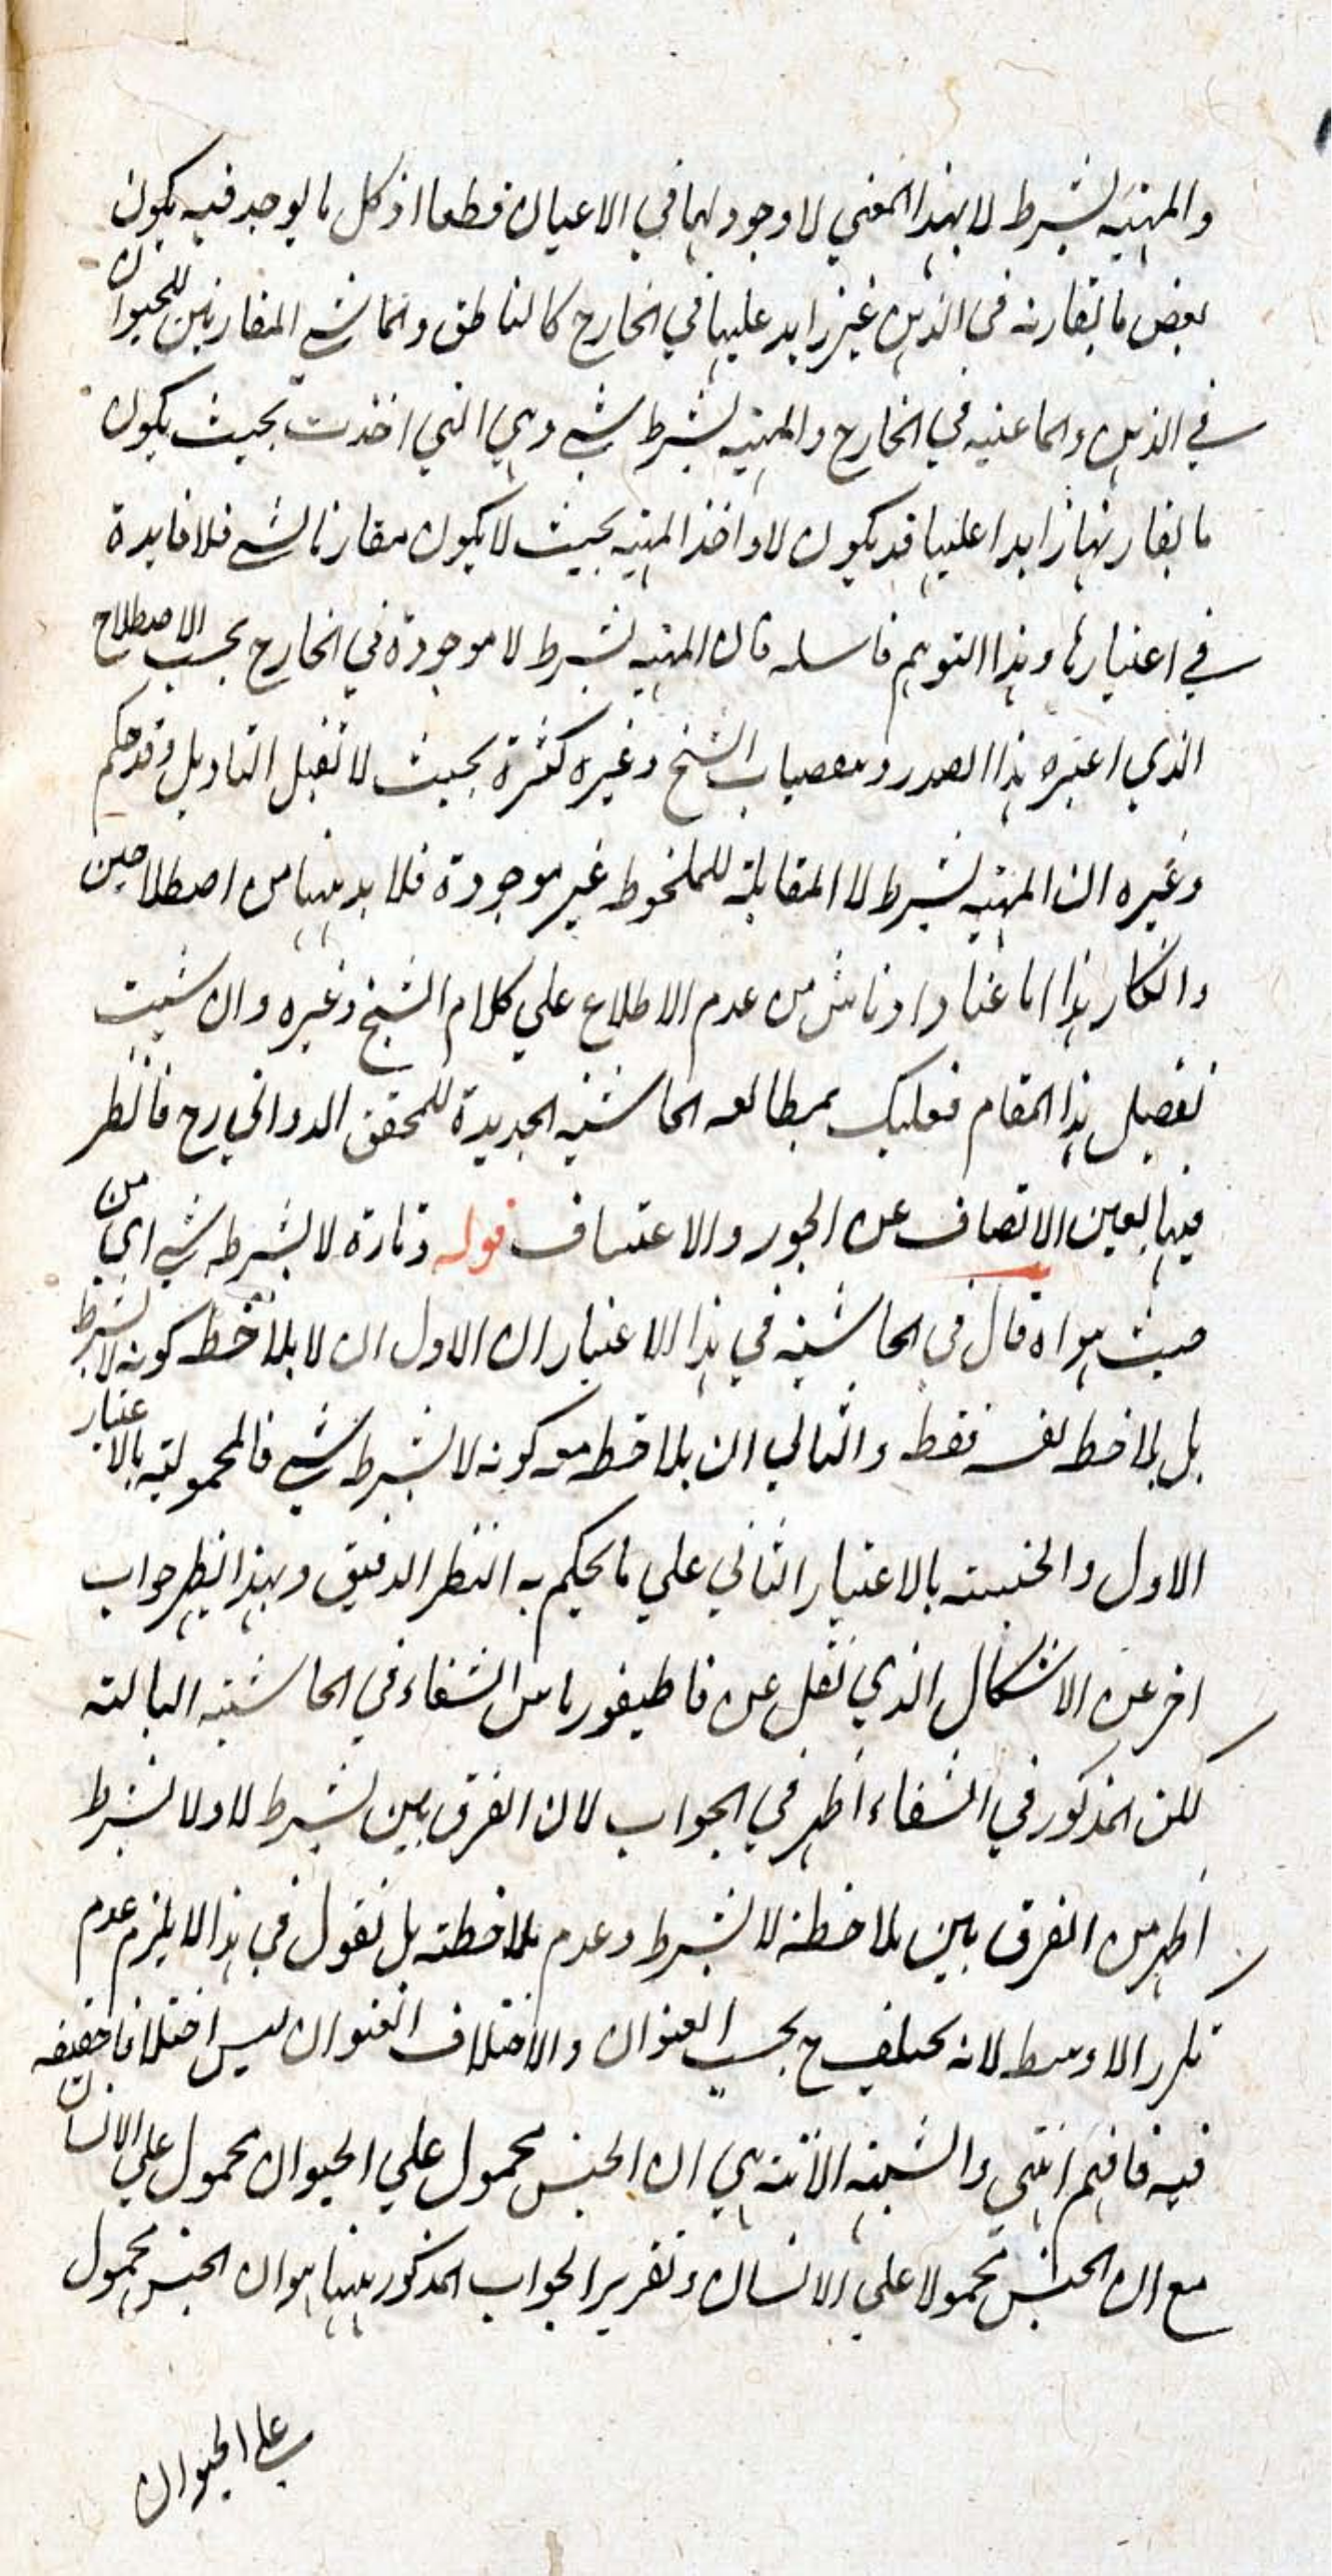 والمهية بشرط لا بهذا المعني لا وجود لها في الاعيان قطعا اذ كل ما يوجد فيه يكون
بعض ما يقارنه في الذهن غير زايد عليها في الخارج كالناطق والماشي المقارنين للحيوان
في الذهن واما عنيه في الخارج والمهية بشرط شي وهي التي اخذت بحيث يكون
ما يقارنها زايدا عليها قد يكون لا واخذ المهية بحيث لا يكون مقارنا لشي فلا فايدة
في اعتبارها وهذا التوهم فان المهية بشرط لا موجودة في الخارج بحسب الاصطلاح
الذي اعتبره هذا الصدر الشيخ وغيره كثرة بحيث لا تقبل التاويل وقد حكم
وغيره ان المهية بشرط لا المقابلة للملخوط غير موجودة فلا بد هنا من اصطلاحين
وانكار هذا اما عنادا او ناش من عدم الاطلاع علي كلام الشيخ وغيره وان شيت
تفصيل هذا المقام فعليك بمطالعه الحاشية الجديدة للمحقق الدواني رح فانظر
فيها بعين الانصاف عن الجور والاعتساف قوله وتارة لا بشرط شي اي من
حيث هو اه قال في الحاشية في هذا الاعتباران الاول ان لا يلاحظ كونه لا بشرط
بل يلاحظ نفسه فقط والثاني ان يلاحظ معه كونه لا بشرط شي فالمحمولية بالاعتبار
الاول والجنسية بالاعتبار الثاني علي ما يحكم به النظر الدقيق وبهذا يظهر جواب
اخر عن الاشكال الذي نقل عن قاطيغورياس الشفاء في الحاشية التالية
لكن المذكور في الشفاء اظهر في الجواب لان الفرق بين بشرط لا ولا بشرط
اظهر من الفرق بين ملاحظة لا بشرط وعدم ملاحظته بل نقول في هذا لا يلزم عدم
تكرر الاوسط لانه يختلف ح بحسب العنوان والاختلاف العنوان ليس اختلافا حقيقه
فيه فافهم انتهي والشبهة الاتية هي ان الجنس محمول علي الحيوان محمول علي الانسان
مع ان الجنس محمولا علي الانسان وتقرير الجواب المذكور هنا هو ان الجنس محمول
علي الحيوان